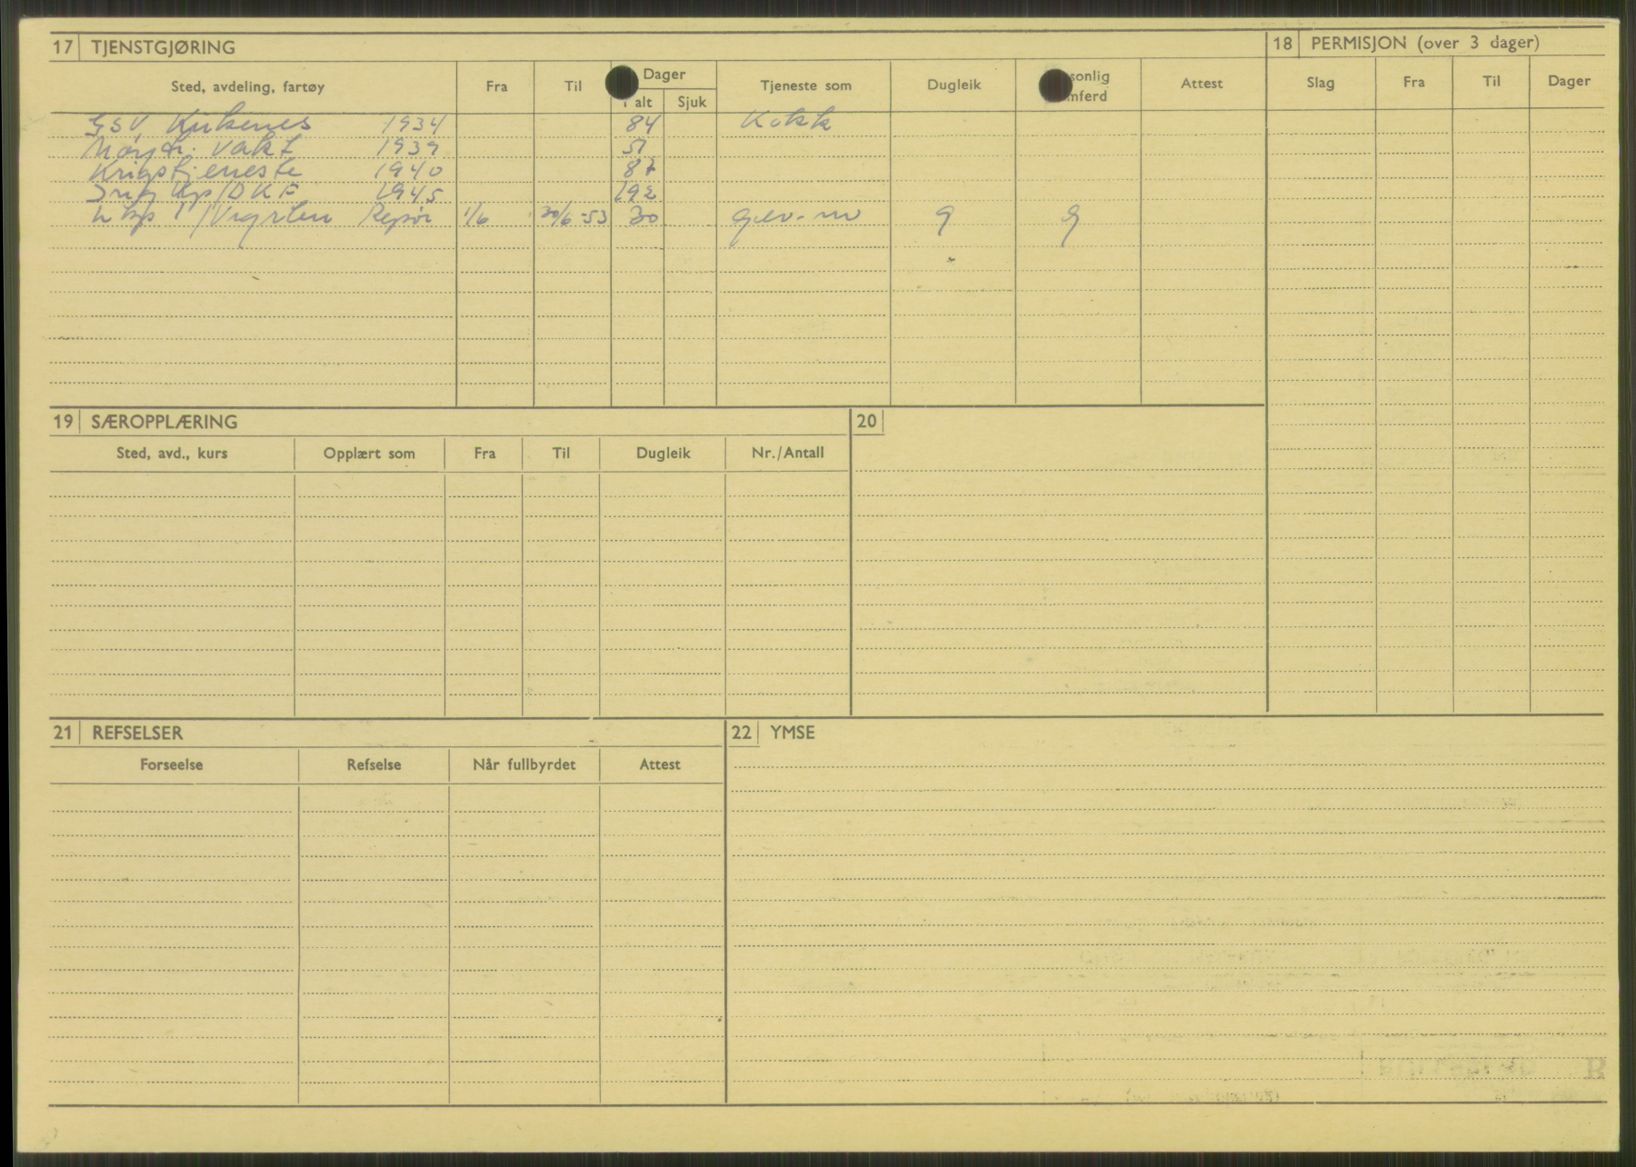 17 TJENSTGJØRING
18 PERMISJON (over 3 dager)
Sted, avdeling, fartøy Fra Til Dager Tjeneste som Dugleik sonlig mferd Attest
alt Sjuk
Slag Fra Til Dager
GSV, Kirkenes 1934 84 Kokk
Nøytr. vakt 1939 51
Krigstjeneste 1940
1945 192
Repøv 1/6 30/6-53 30 gev.m g g
19 SÆROPPLÆRING
20
Sted, avd., kurs Opplært som Fra Til Dugleik Nr./Antall
21 REFSELSER
22 YMSE
Forseelse Refselse Når fullbyrdet Attest